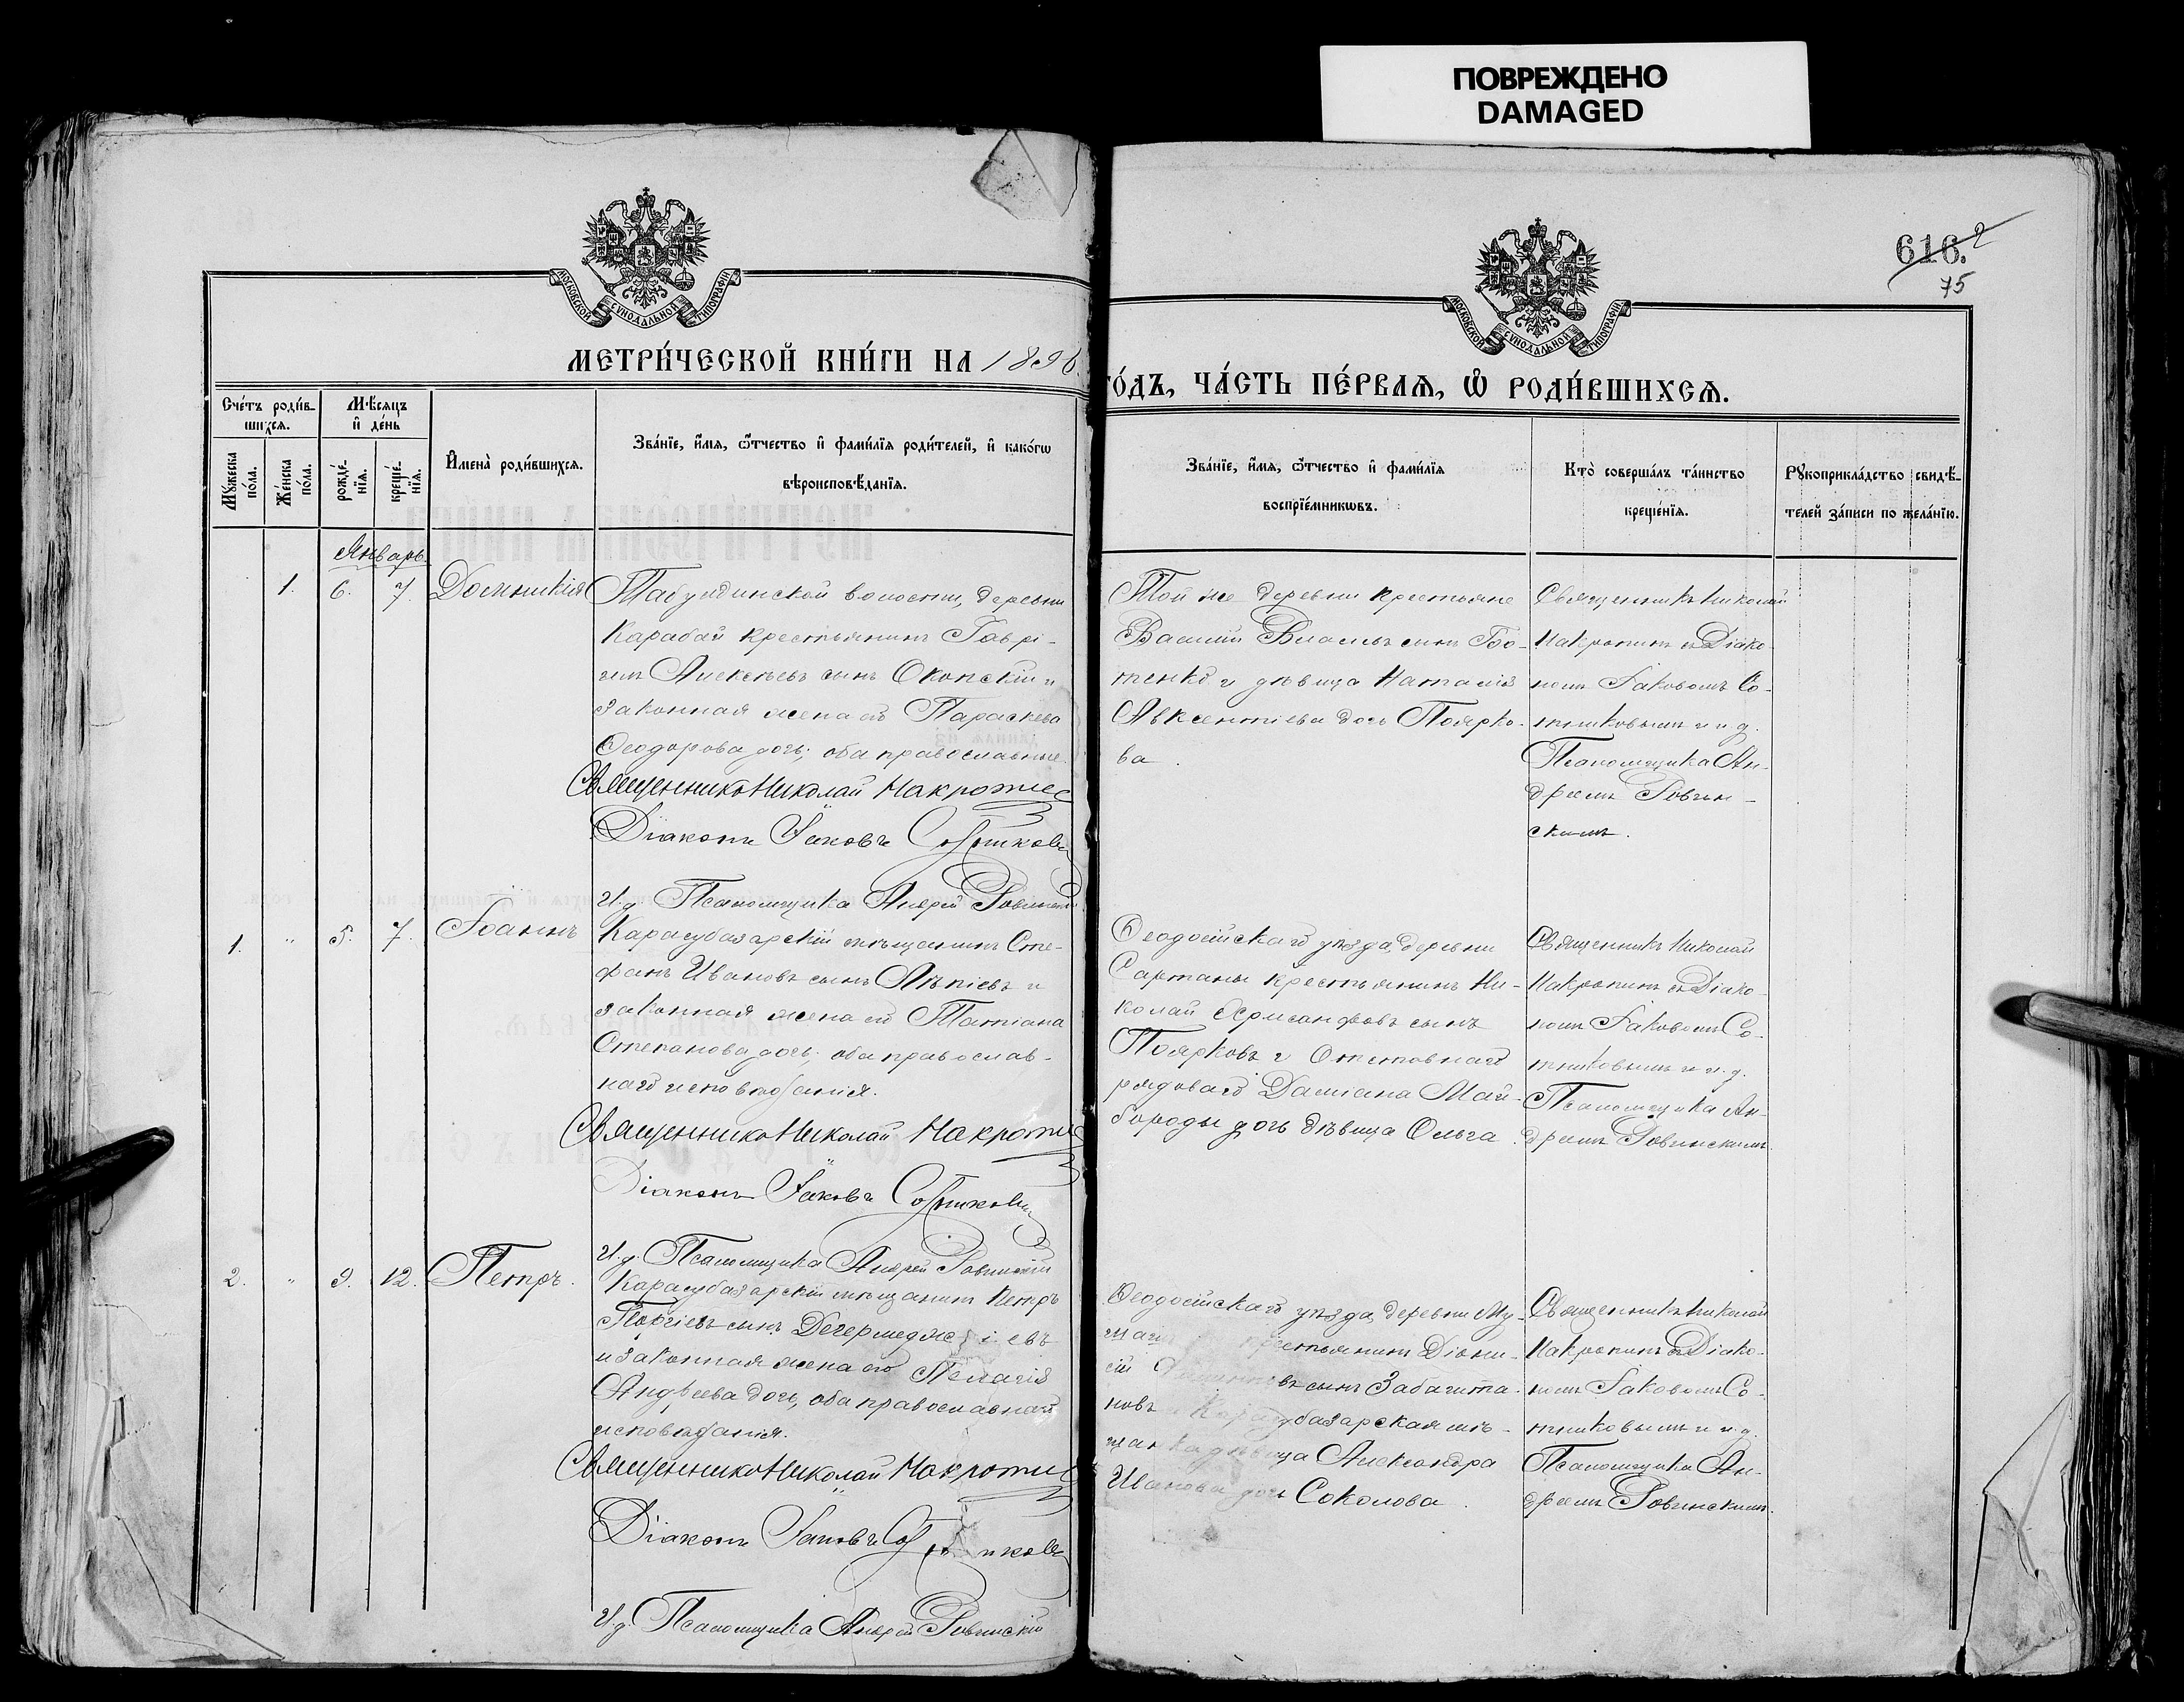 ПОВРЕЖДЕНО
DAMAGED
616. 2
75
МОСКОВСКОЙ СѴНОДАЛЬНОЙ ТИПОГРАФІИ
МОСКОВСКОЙ СѴНОДАЛЬНОЙ ТИПОГРАФІИ
МЕТРИ́ЧЕСКОЙ КНИ́ГИ НА 1896
ГО́ДЪ, ЧА́СТЬ ПЕ́РВАЯ, Ѿ РОДИ́ВШИХСЯ.
Сче́тъ роди́в-
шихся.
Мѣ́сяцъ
и де́нь
Му́жеска
по́ла.
Же́нска
по́ла.
рожде́-
нїя.
креще́-
нїя.
И҆мена̀ роди́вшихся.
Зва́нїе, и҆́мя, ѻ҆́тчество и҆ фами́лїя роди́телей, и҆ како́гѡ
вѣроисповѣ́данїя.
Зва́нїе, и҆́мя, ѻ҆́тчество и҆ фами́лїя
воспрїе́мникѡвъ.
Кто̀ соверша́лъ та́инство
креще́нїя.
Рꙋкоприкла́дство свидѣ́-
телей за́писи по жела́нїю.
Январь
1. 6. 7. Домникія
Табулдинской волости, деревни
Карабай крестьянинъ Гаврі-
илъ Алексѣевъ сынъ Окопскій и
законная жена его Параскева
Ѳеодорова дочь; оба православные.
Священникъ Николай Макротин
Діаконъ Іаковъ Сотников
И. д. Псаломщика Андрей Ровинскій
Той же деревни крестьяне
Василій Власовъ сынъ Бо-
тенко и дѣвица Наталія
Авксентіева дочь Поярко-
ва.
Священникъ Николай
Макротинъ съ Діако-
номъ Іаковомъ Со-
тниковымъ и и. д.
Псаломщика Ан-
дреемъ Ровин-
скимъ.
1. " 5. 7. Іоаннъ
Карасубазарскій мѣщанинъ Сте-
фанъ Ивановъ сынъ Лѣпіевъ и
законная жена его Татіана
Степанова дочь; оба православ-
наго исповѣданія.
Священникъ Николай Макротин
Діаконъ Іаковъ Сотников
И. д. Псаломщика Андрей Ровинскій
Ѳеодосійскаго уѣзда, деревни
Сартаны крестьянинъ Ни-
колай Хрисанфовъ сынъ
Поярковъ и отставнаго
рядоваго Даміана Май-
бороды дочь дѣвица Ольга.
Священникъ Николай
Макротинъ съ Діако-
номъ Іаковомъ Со-
тниковымъ и и. д.
Псаломщика Ан-
дреемъ Ровинскимъ.
2. " 9. 12. Петръ.
Карасубазарскій мѣщанинъ Петръ
сынъ
и законная жена его Пелагія
Андреева дочь, оба православнаго
исповѣданія.
Священникъ Николай Макротин
Діаконъ Іаковъ Сотников
И. д. Псаломщика Андрей Ровинскій
Ѳеодосійскаго уѣзда, деревни
крестьянинъ Діони-
сій сынъ Забагита-
новъ и Карасубазарская мѣ-
щанка дѣвица Александра
Иванова дочь Соколова.
Священникъ Николай
Макротинъ съ Діако-
номъ Іаковомъ Со-
тниковымъ и и. д.
Псаломщика Ан-
дреемъ Ровинскимъ.